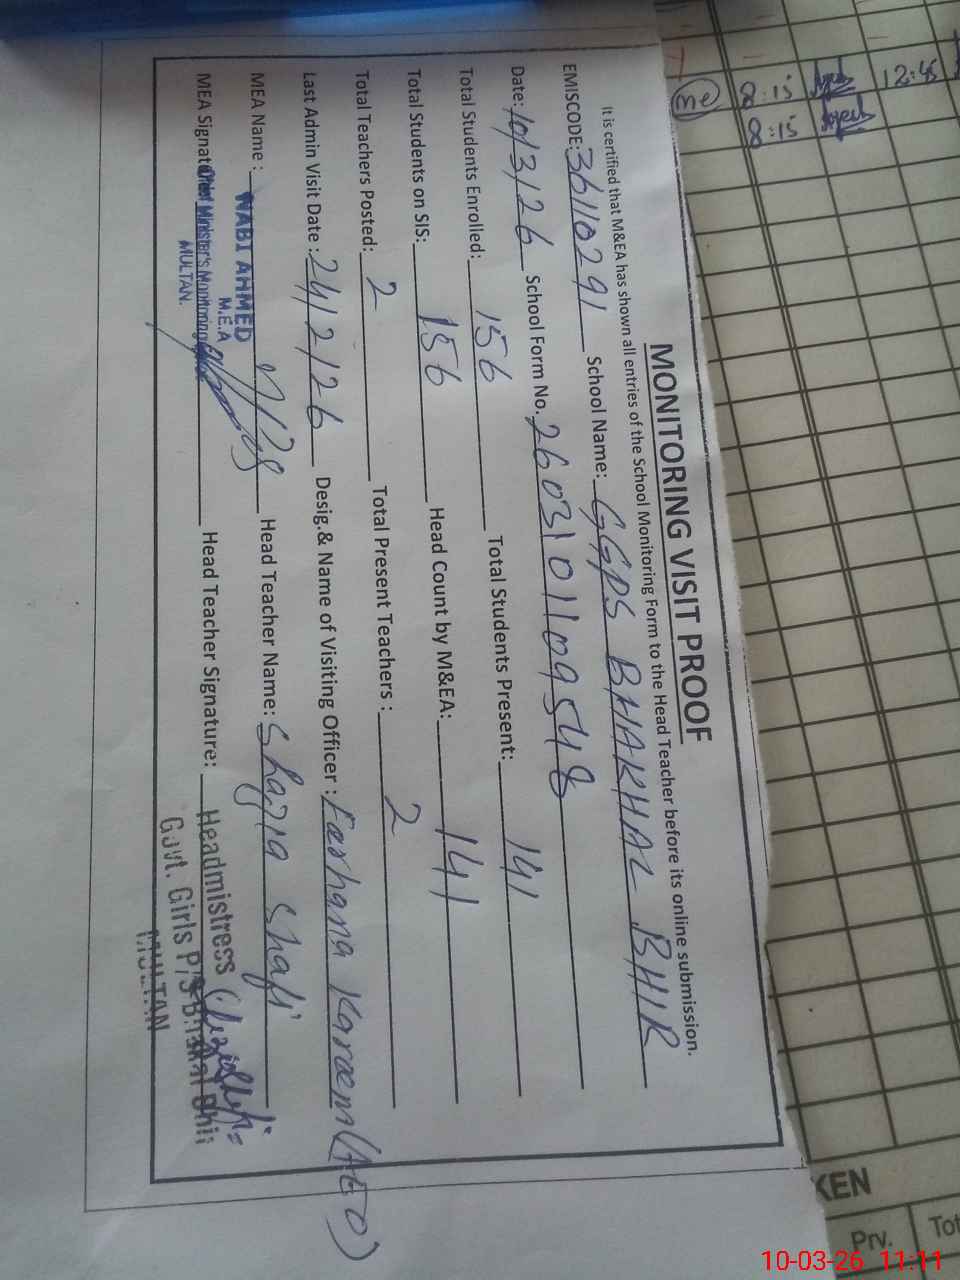 MONITORING VISIT PROOF
It is certified that M&EA has shown all entries of the School Monitoring Form to the Head Teacher before its online submission.
EMISCODE: 36110291 School Name: GGPS BHAKHAL BHIR
Date: 10/3/26 School Form No. 2603101109548
Total Students Enrolled: 156 Total Students Present: 141
Total Students on SIS: 156 Head Count by M&EA: 141
Total Teachers Posted: 2 Total Present Teachers : 2
Last Admin Visit Date : 24/2/26 Desig.& Name of Visiting Officer : Farhana Karaem (AEO)
MEA Name : NABI AHMED Head Teacher Name: Shazia Shafi
M.E.A
MEA Signat Chief Minister's Monitoring Head Teacher Signature: Headmistress
MULTAN.
Govt. Girls P/S
MULTAN
me 8:15 12:45
8:15
KEN
Prv. Tot
10-03-26 11:11